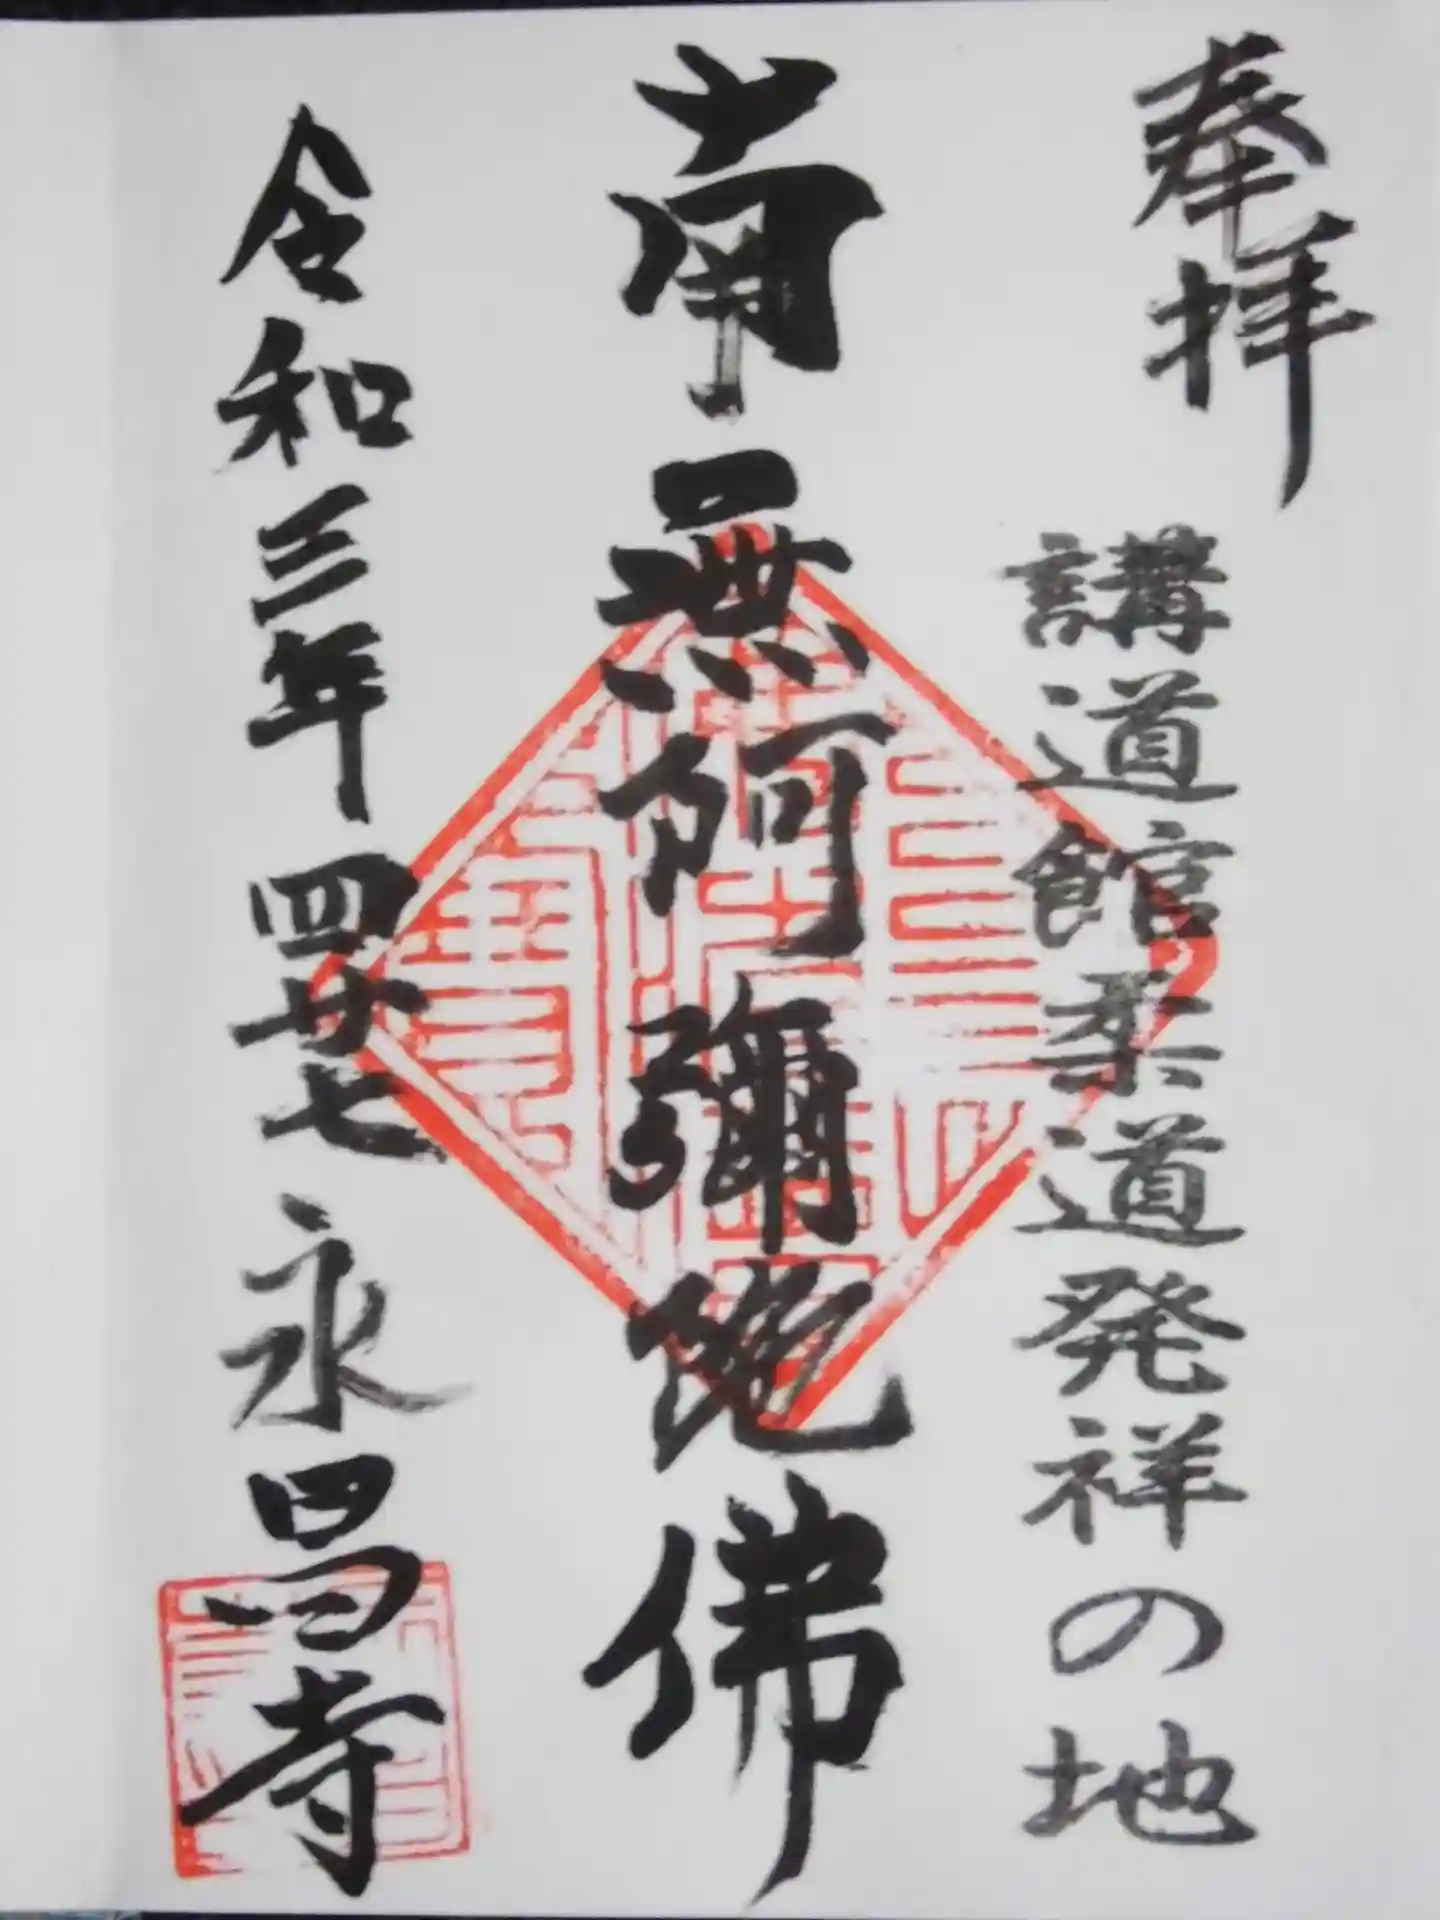 奉拝
講道館柔道発祥の地
南無阿彌陀佛
令和三年四廿七
永昌寺